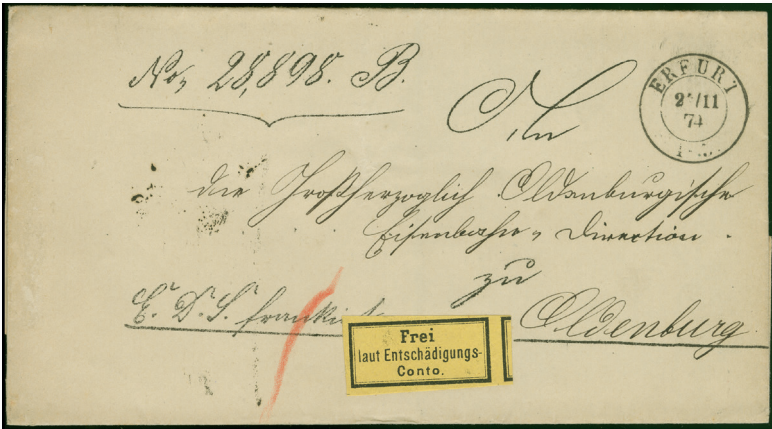 No, 28,898. B.
ERFURT
11
74
An
die Großherzoglich Oldenburgische
Eisenbahn-Direction.
zu
Oldenburg
E. D. S.
Frei
laut Entschädigungs-
Conto.